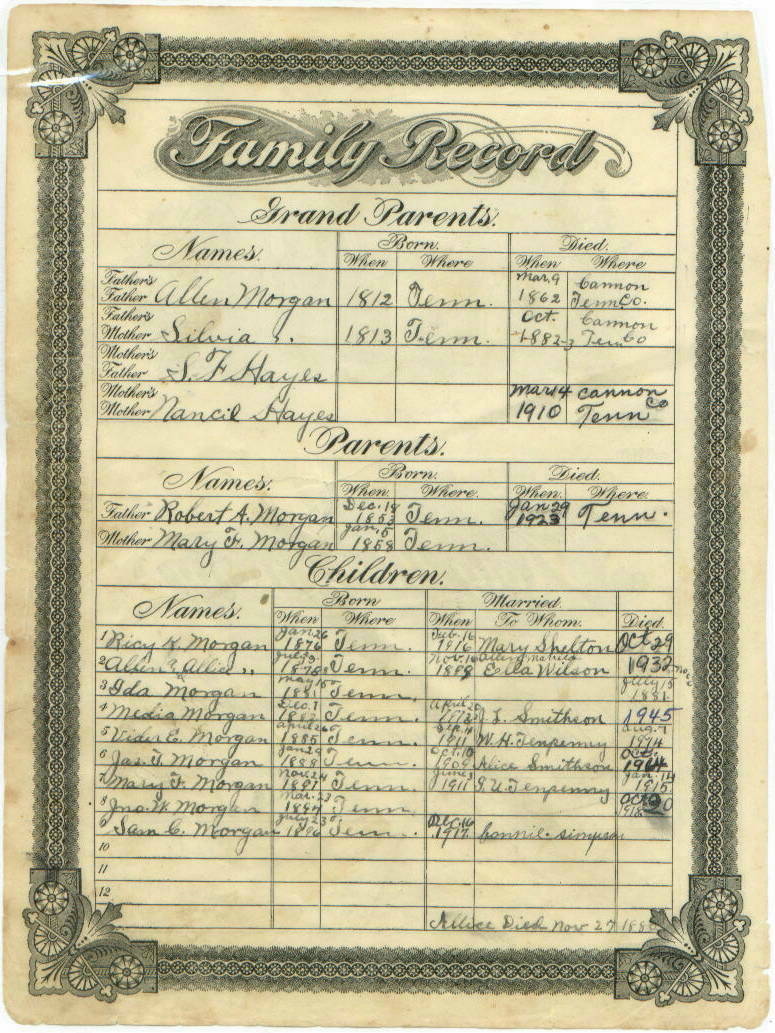 Family Record
Grand Parents.
Names. Born. Died.
When Where When Where
Father's Mar, 9 Cannon
Father Allen Morgan 1812 Tenn. 1862 Tenn Co.
Father's Oct. Cannon
Mother Silvia " 1813 Tenn. 1882-3 Tenn Co
Mother's
Father S. F Hayes
Mother's Mar 4 Cannon
Mother Nancie Hayes 1910 Tenn Co
Parents.
Names. Born. Died.
When. Where. When. Where.
Dec. 18 Jan 29
Father Robert A. Morgan 1853 Tenn. 1923 Tenn.
Jan, 5
Mother Mary F. Morgan 1858 Tenn.
Children.
Names. Born Married.
When Where When To Whom. Died.
Jan 26 Feb. 16
1 Ricy K. Morgan 1876 Tenn. 1916 Mary Shelton Oct 29
July 3 Nov. 16
2 Allie " 1878 Tenn. Ella Wilson 1932
May 15 July 13
3 Ida Morgan 1881 Tenn. 1881
Dec. 7 April
4 Media Morgan Tenn. J. L. Smithson 1945
April 26 Aug. 7
5 Vider E. Morgan 1885 Tenn. 1911 W. H. Tenpenny 1974
Jan 29 Oct. 10 Oct.
6 Jas. T. Morgan 1888 Tenn. 1909 Alice Smithson 1964
Nov. 24 June 3 Jan. 14
7 Mary F. Morgan 1891 Tenn. 1911 G. U. Tenpenny 1915
Mar. 23 Oct 20
8 Jno. W. Morgan 1894 Tenn. 1918
July 23 Dec. 16
Sam C. Morgan 1896 Tenn. 1917 Connie Simpson
10
11
12
Allice Died Nov 27